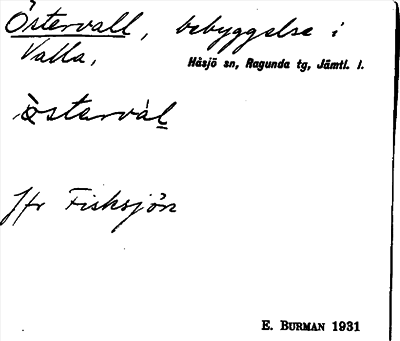 Östervall, bebyggelse i
Valla,
Håsjö sn, Ragunda tg, Jämtl. l.
òstervàl
Jfr Fisksjön
E. BURMAN 1931